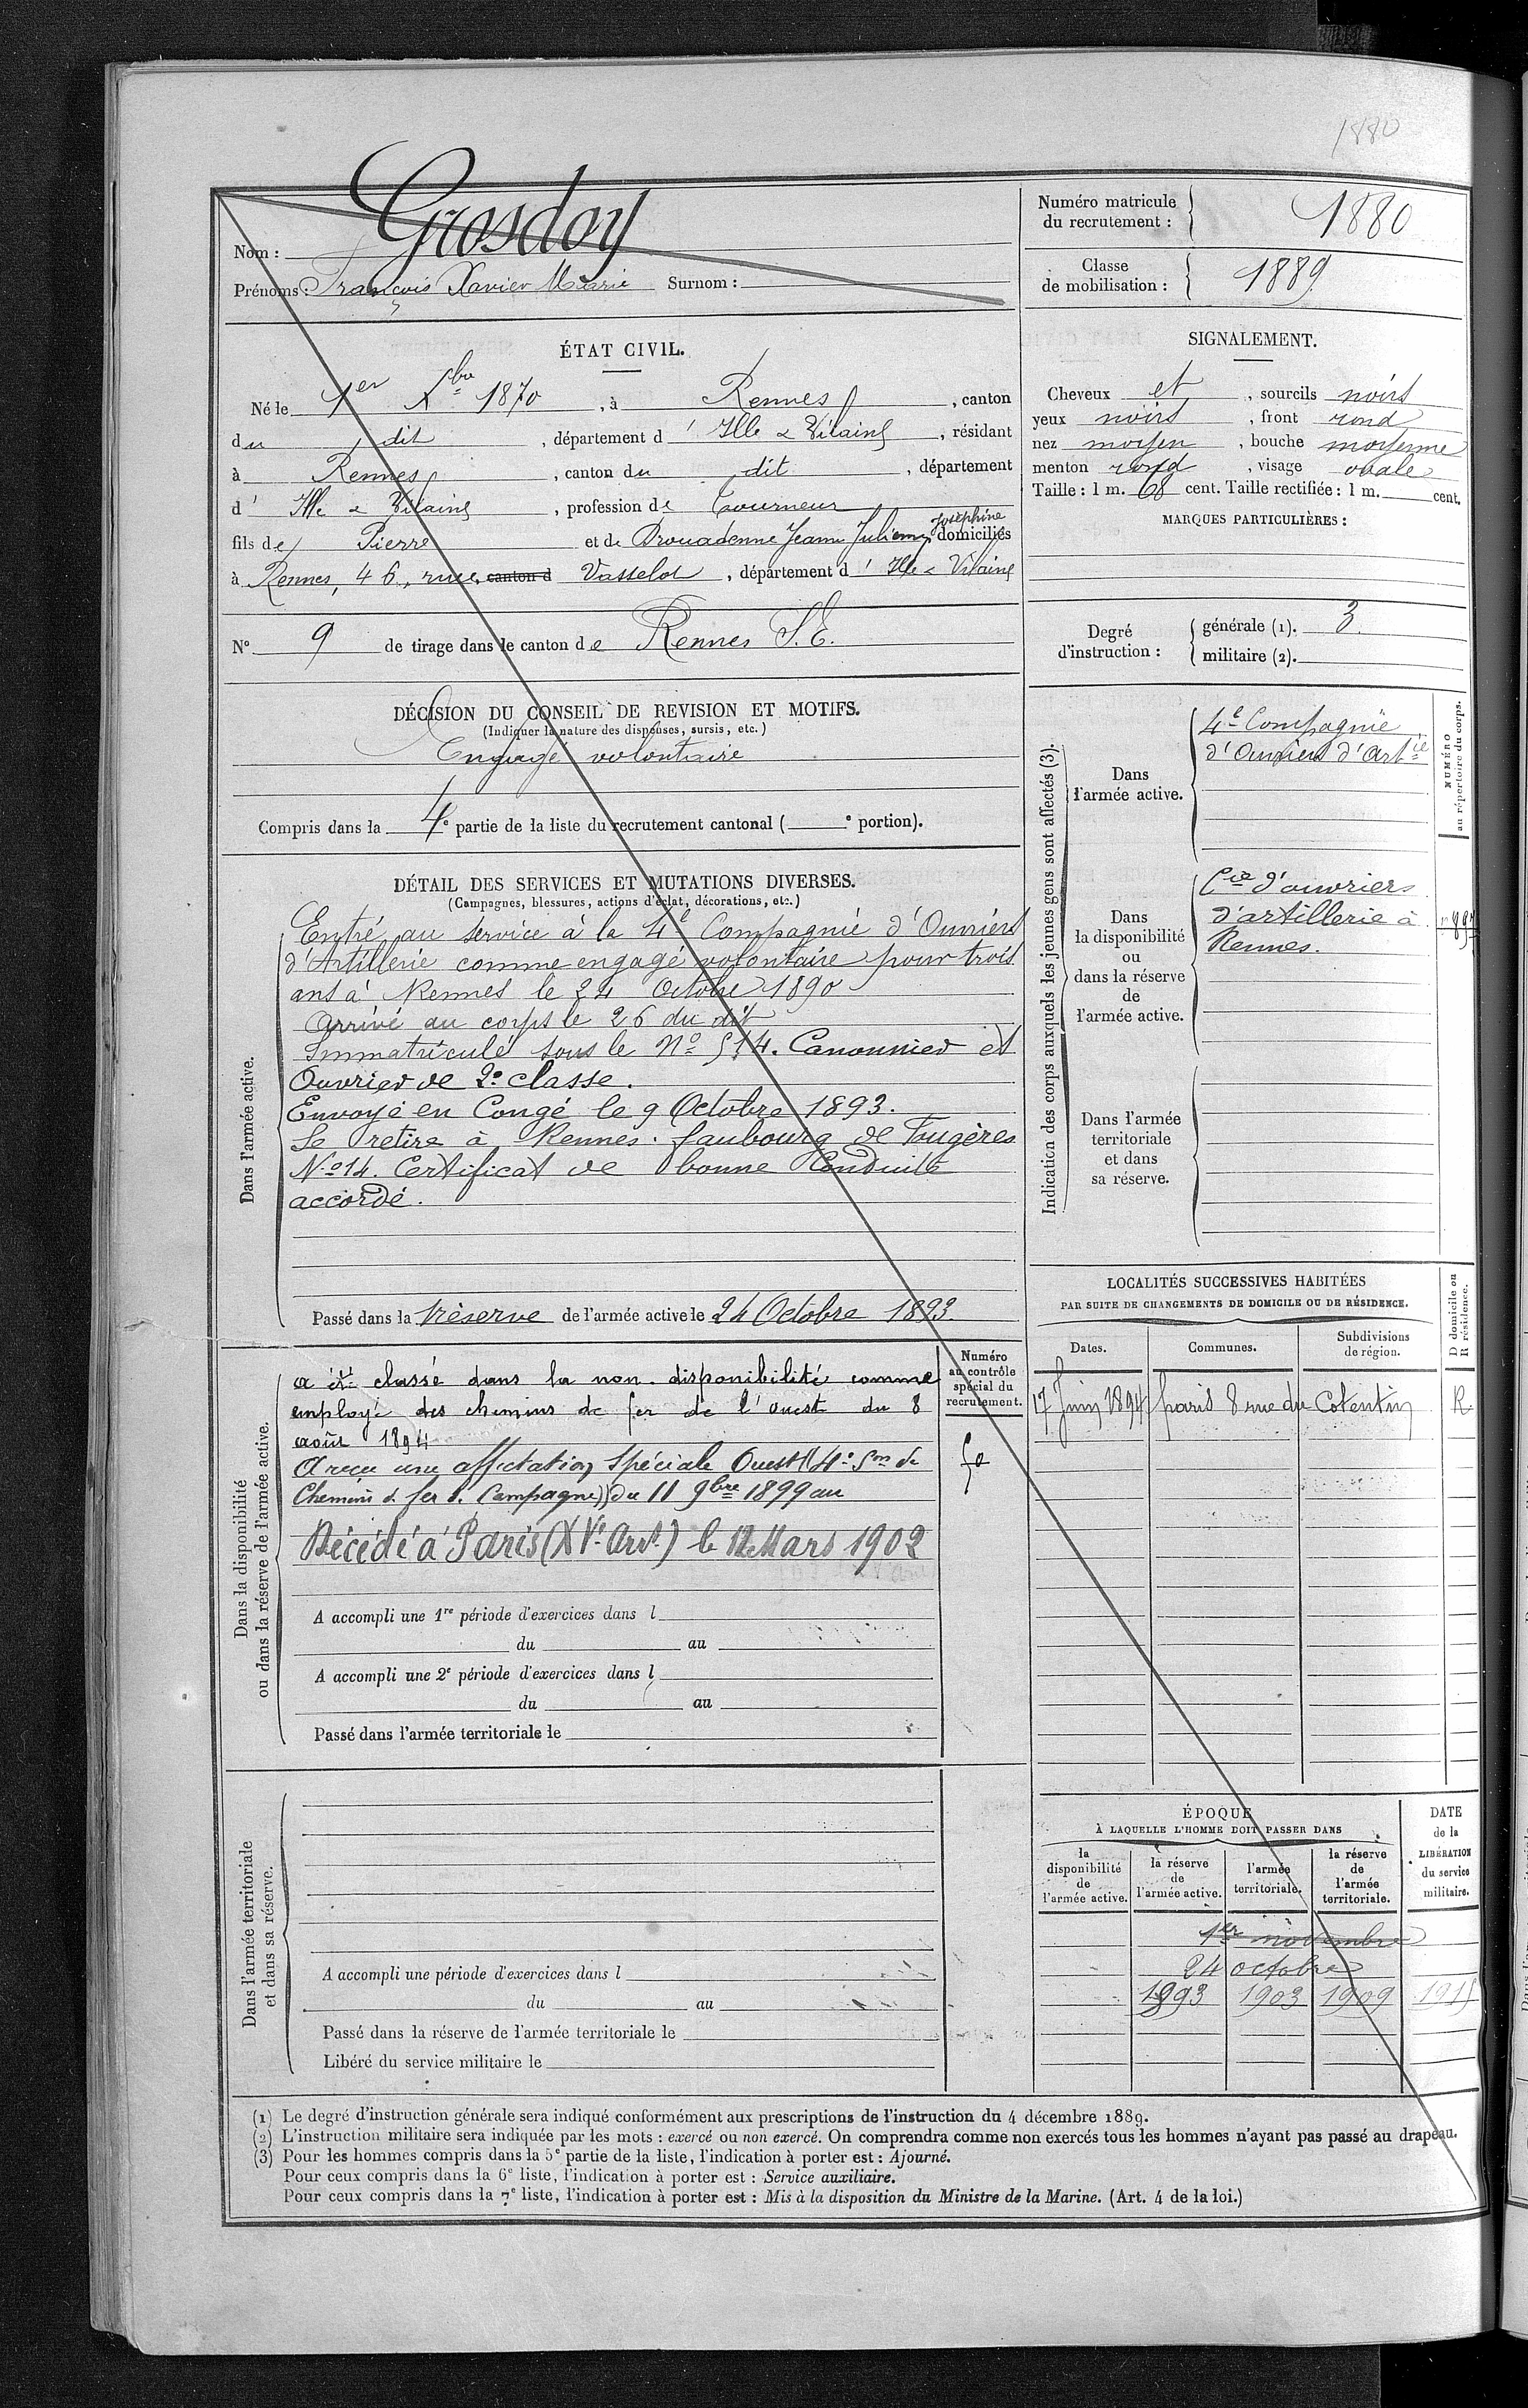 1880
Nom : Grosdoy
Prénoms : François Xavier Marie Surnom :
Numéro matricule du recrutement : 1880
Classe de mobilisation : 1889
ÉTAT CIVIL.
Né le 1er Xbre 1870, à Rennes, canton
du dit, département d'Ille & Vilaine, résidant
à Rennes, canton du dit, département
d'Ille & Vilaine, profession de Tourneur
fils de Pierre et de Drouadenne Jeanne Julienne Joséphine domiciliés
à Rennes, 46, rue canton d Vasselot, département d'Ille & Vilaine
N° 9 de tirage dans le canton de Rennes S.E.
DÉCISION DU CONSEIL DE REVISION ET MOTIFS.
(Indiquer la nature des dispenses, sursis, etc.)
Engagé volontaire
Compris dans la 4e partie de la liste du recrutement cantonal ( e portion).
DÉTAIL DES SERVICES ET MUTATIONS DIVERSES.
(Campagnes, blessures, actions d'éclat, décorations, etc.)
Dans l'armée active.
Entré au service à la 4e Compagnie d'Ouvriers
d'Artillerie comme engagé volontaire pour trois
ans à Rennes le 24 Octobre 1890
Arrivé au corps le 26 du dit
Immatriculé sous le No 514. Canonnier et
Ouvrier de 2e classe.
Envoyé en Congé le 9 Octobre 1893.
Se retire à Rennes. faubourg de Fougères
No 14. Certificat de bonne Conduite
accordé.
Passé dans la réserve de l'armée active le 24 Octobre 1893.
Dans la disponibilité
ou dans la réserve de l'armée active.
Numéro
au contrôle
spécial du
recrutement.
a été classé dans la non-disponibilité comme
employé des chemins de fer de l'ouest du 8
août 1894
A reçu une affectation Spéciale Ouest (4e Son de
Chemins d. fer d. Campagne) du 11 9bre 1899 au
Décédé à Paris (XVe Arrt) le 12 Mars 1902
A accompli une 1re période d'exercices dans l
du au
A accompli une 2e période d'exercices dans l
du au
Passé dans l'armée territoriale le
Dans l'armée territoriale
et dans sa réserve.
A accompli une période d'exercices dans l
du au
Passé dans la réserve de l'armée territoriale le
Libéré du service militaire le
SIGNALEMENT.
Cheveux et, sourcils noirs
yeux noirs, front rond
nez moyen, bouche moyenne
menton rond, visage ovale
Taille : 1 m. 68 cent. Taille rectifiée : 1 m. cent.
MARQUES PARTICULIÈRES :
Degré d'instruction :
générale (1). 3.
militaire (2).
Indication des corps auxquels les jeunes gens sont affectés (3).
NUMÉRO
au répertoire du corps.
Dans
l'armée active.
4e Compagnie
d'Ouvriers d'Artie
Dans
la disponibilité
ou
dans la réserve
de
l'armée active.
Cie d'ouvriers
d'artillerie à
Rennes.
Dans l'armée
territoriale
et dans
sa réserve.
LOCALITÉS SUCCESSIVES HABITÉES
PAR SUITE DE CHANGEMENTS DE DOMICILE OU DE RÉSIDENCE.
Dates. Communes. Subdivisions de région.
D domicile ou
R résidence.
17 Juin 1894 paris 8 rue du Cotentin R
ÉPOQUE
À LAQUELLE L'HOMME DOIT PASSER DANS
la disponibilité de l'armée active.
la réserve de l'armée active.
l'armée territoriale.
la réserve de l'armée territoriale.
DATE de la LIBÉRATION du service militaire.
1er novembre
24 octobre
1893 1903 1909 1915
(1) Le degré d'instruction générale sera indiqué conformément aux prescriptions de l'instruction du 4 décembre 1889.
(2) L'instruction militaire sera indiquée par les mots : exercé ou non exercé. On comprendra comme non exercés tous les hommes n'ayant pas passé au drapeau.
(3) Pour les hommes compris dans la 5e partie de la liste, l'indication à porter est : Ajourné.
Pour ceux compris dans la 6e liste, l'indication à porter est : Service auxiliaire.
Pour ceux compris dans la 7e liste, l'indication à porter est : Mis à la disposition du Ministre de la Marine. (Art. 4 de la loi.)